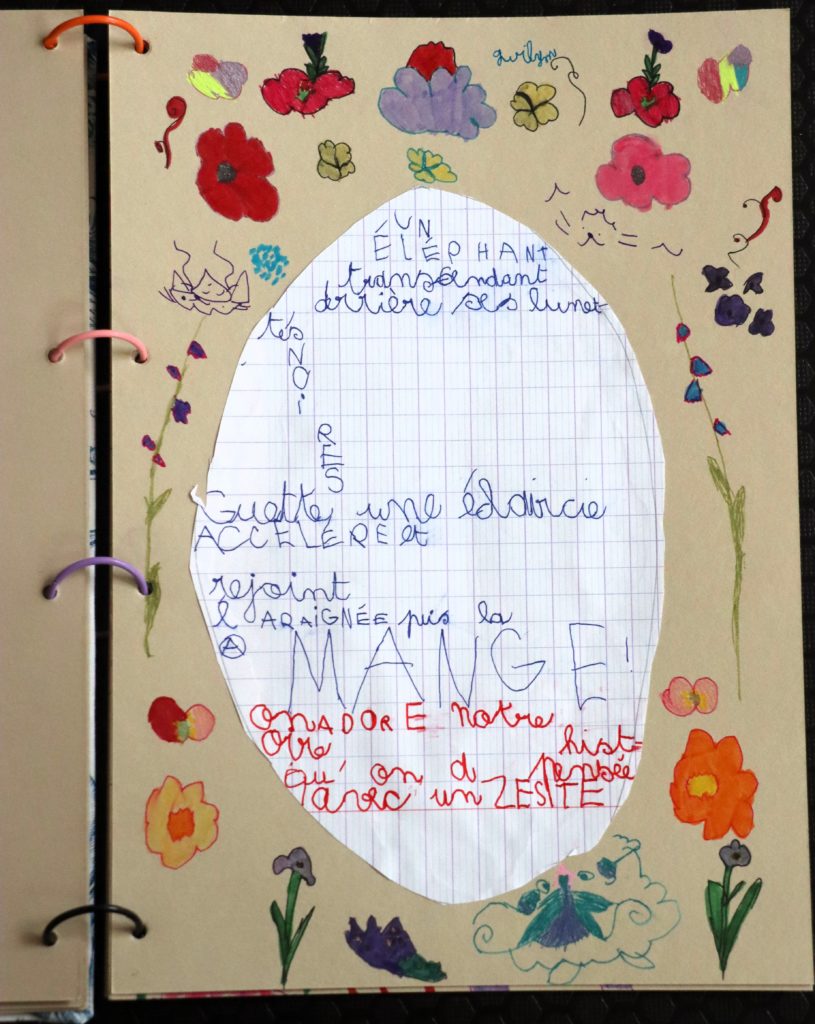 UN
ÉLÉPHANT
transendant
derrière ses lunet-
tes
NOI
RES
Guette une éclaircie
ACCELERE et
rejoint
l ARAIGNÉE puis la
A
MANGE!
ON ADORE notre
hist=
oire
qu' on a pensée
avec un ZESTE